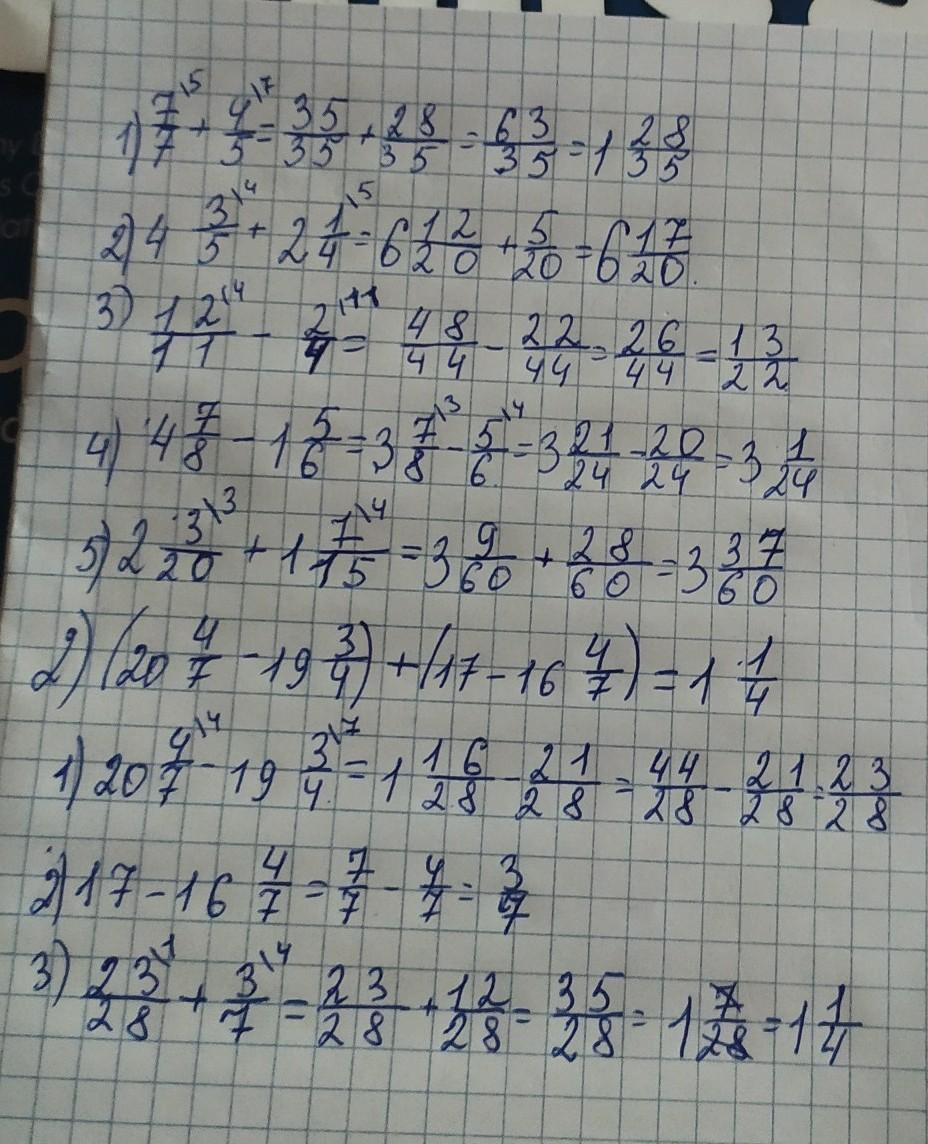 1) 7/7\5 + 4/5\7 = 35/35 + 28/35 = 63/35 = 1 28/35
2) 4 3/5\4 + 2 1/4\5 = 6 12/20 + 5/20 = 6 17/20.
3) 12/11\4 - 2/4\11 = 48/44 - 22/44 = 26/44 = 13/22
4) 4 7/8 - 1 5/6 = 3 7/8\3 - 5/6\4 = 3 21/24 - 20/24 = 3 1/24
5) 2 3/20\3 + 1 7/15\4 = 3 9/60 + 28/60 = 3 37/60
2) (20 4/7 - 19 3/4) + (17 - 16 4/7) = 1 1/4
1) 20 4/7\4 - 19 3/4\7 = 1 16/28 - 21/28 = 44/28 - 21/28 = 23/28
2) 17 - 16 4/7 = 7/7 - 4/7 = 3/7
3) 23/28\1 + 3/7\4 = 23/28 + 12/28 = 35/28 = 1 7/28 = 1 1/4